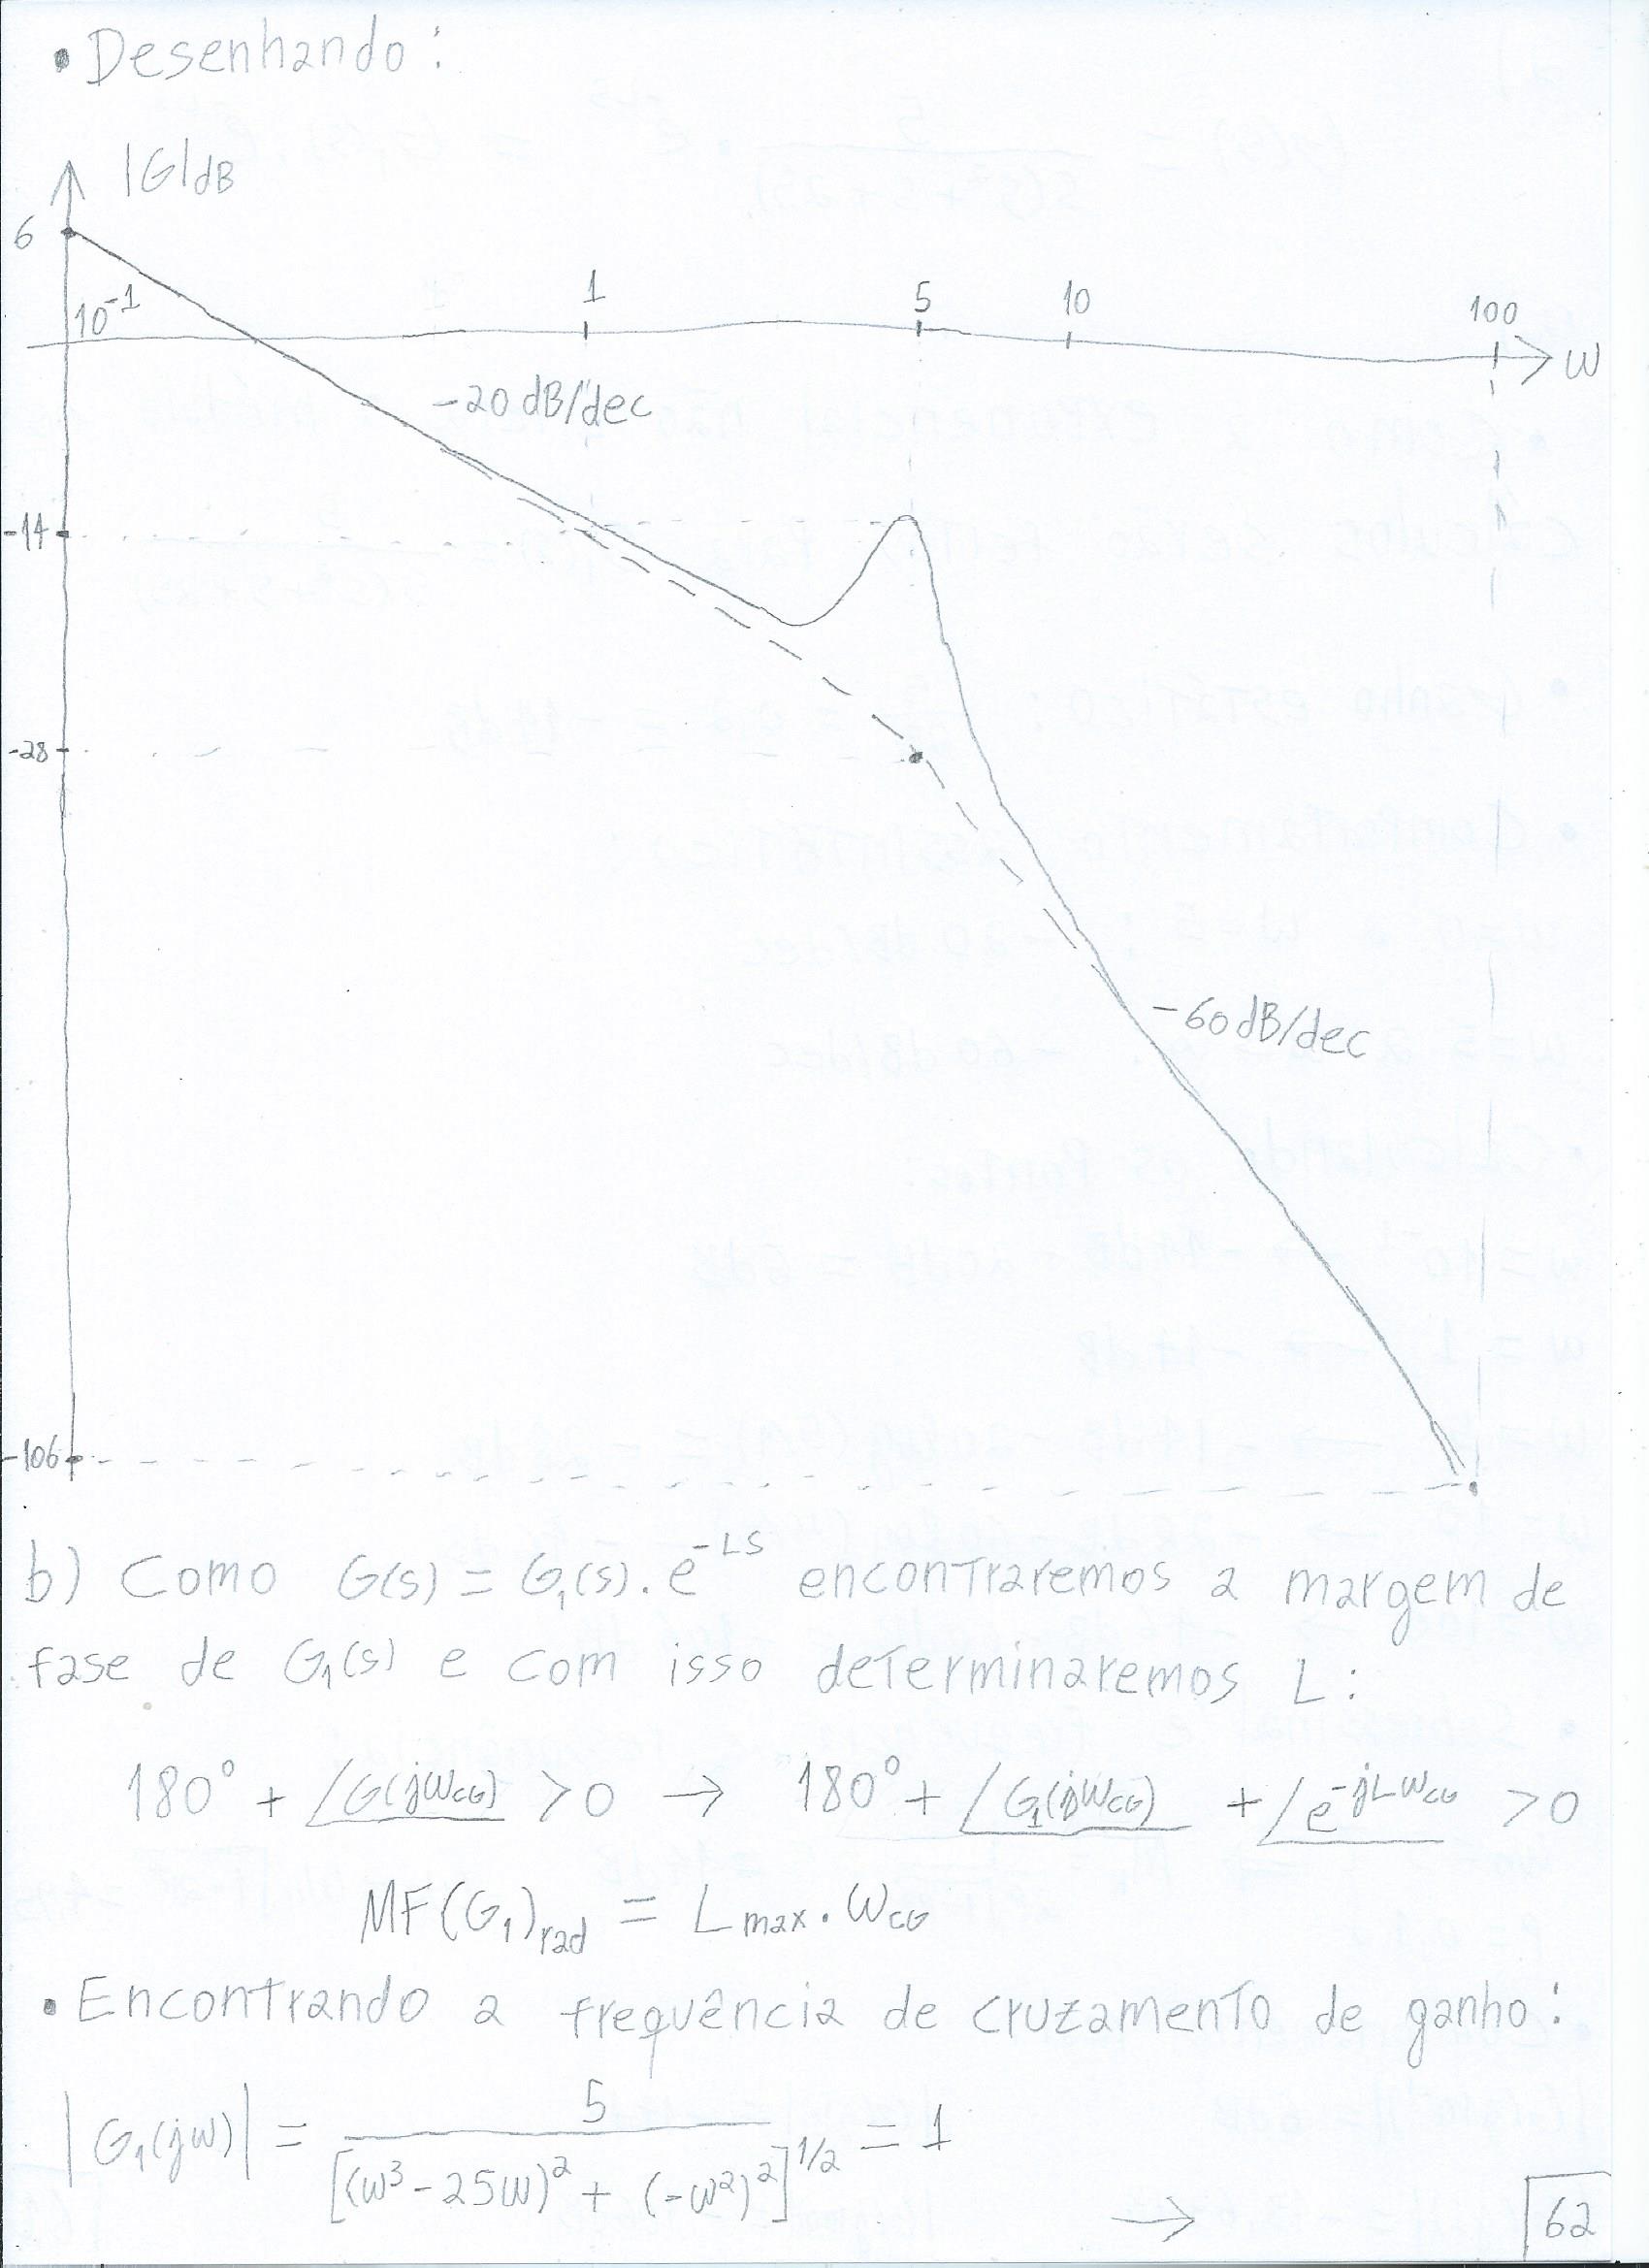 • Desenhando:
|G|dB
6
10⁻¹ 1 5 10 100
W
-20 dB/dec
-14
-28
-60 dB/dec
-106
b) Como G(s) = G₁(s).e^-LS encontraremos a margem de
fase de G₁(s) e com isso determinaremos L:
180° + /G(jWCG) >0 → 180° + /G₁(jWCG) + /e^-jLWCG >0
MF(G₁)rad = Lmax.WCG
• Encontrando a frequência de cruzamento de ganho:
|G₁(jw)| = 5 / [(w³-25w)² + (-w²)²]^1/2 = 1
→ 62